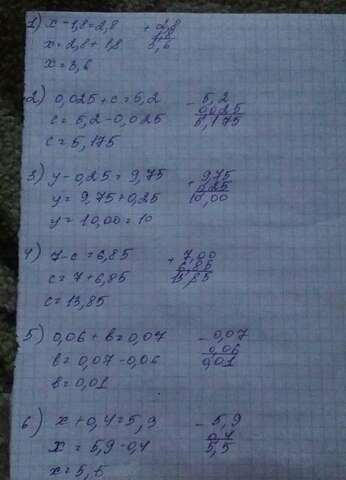 1) x - 1,8 = 2,8 + 2,8
x = 2,8 + 1,8 1,8
x = 3,6 3,6
2) 0,025 + c = 5,2 - 5,2
c = 5,2 - 0,025 0,025
c = 5,175 5,175
3) y - 0,25 = 9,75 + 9,75
y = 9,75 + 0,25 0,25
y = 10,00 = 10 10,00
4) 7 - c = 6,85 + 7,00
c = 7 + 6,85 6,85
c = 13,85 13,85
5) 0,06 + b = 0,07 - 0,07
b = 0,07 - 0,06 0,06
b = 0,01 0,01
6) x + 0,4 = 5,9 - 5,9
x = 5,9 - 0,4 0,4
x = 5,5 5,5